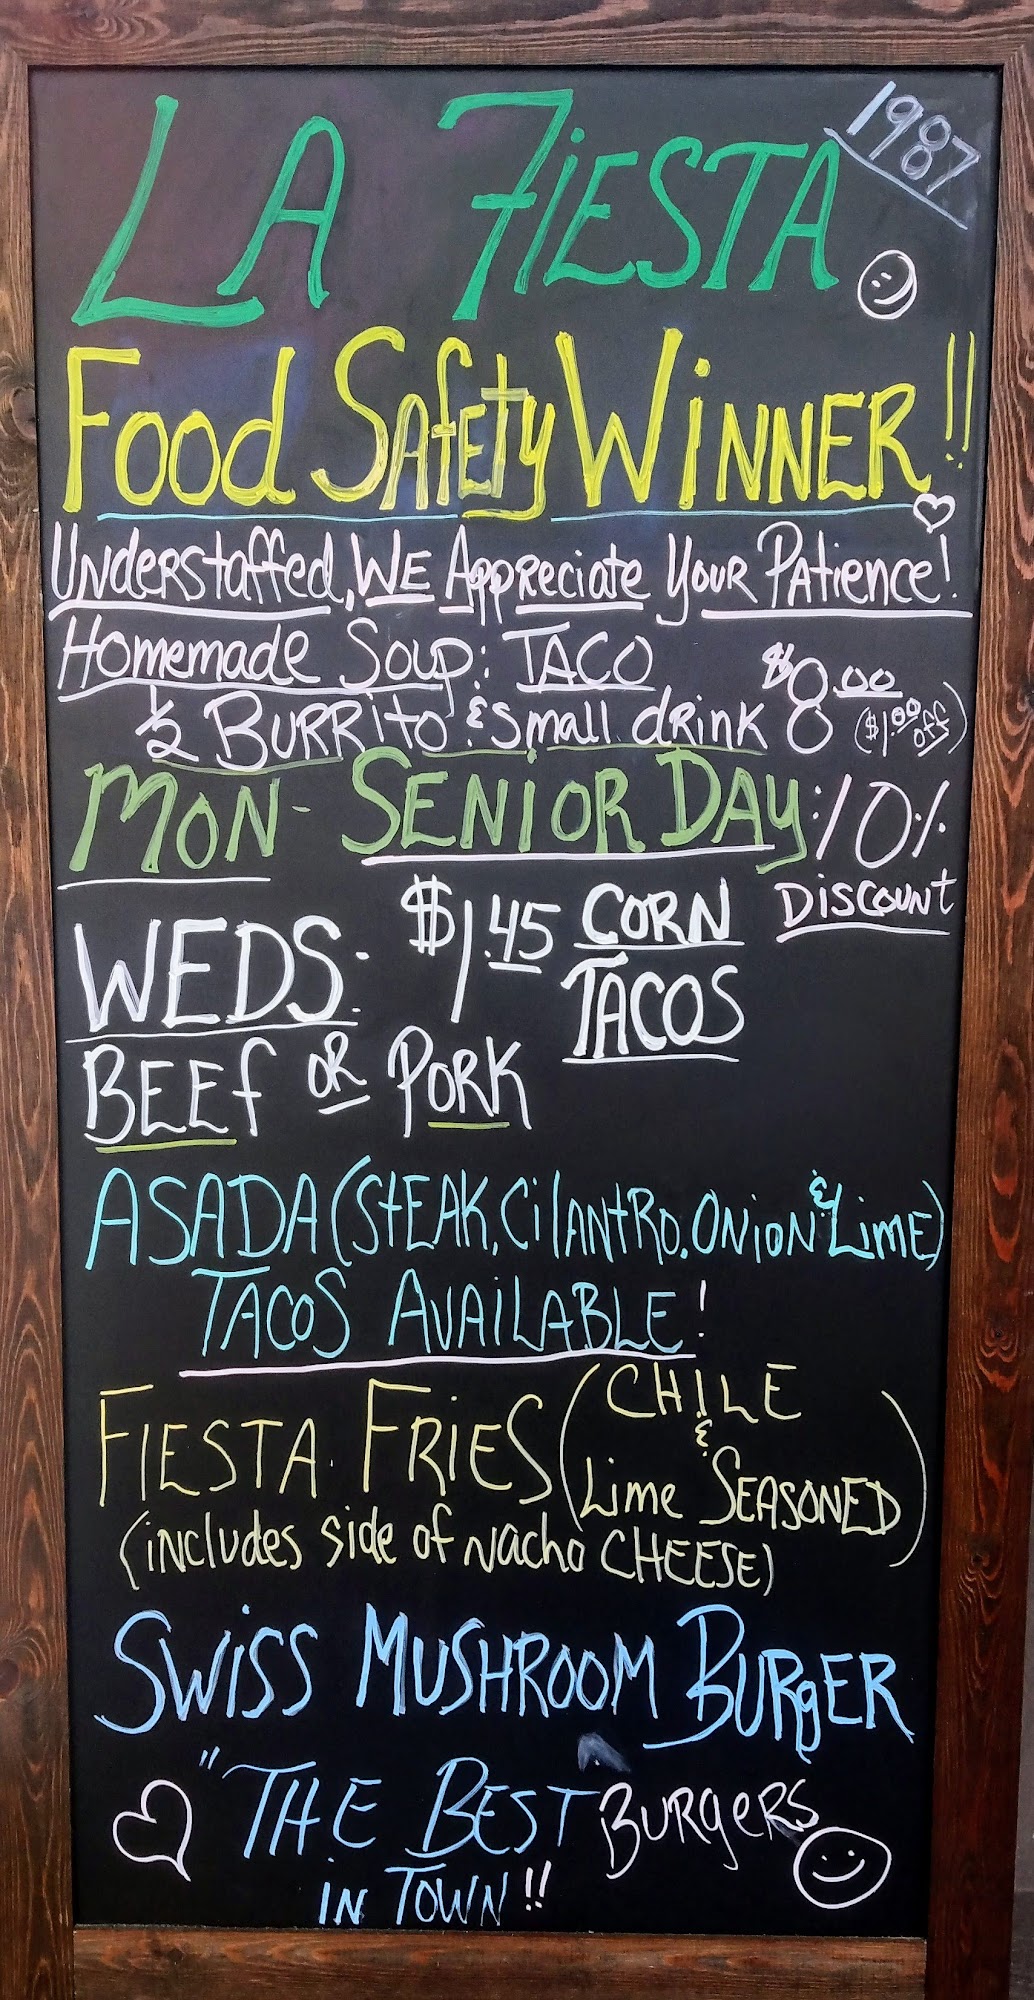 LA FIESTA 1987
Food SAfETy WINNER!!
UNdeRstaffed, WE AppReciate YOUR PAtience!
Homemade Soup: TACO $8.00
½ BURRito & small dRINK ($1.00 off)
MON- SENiOR DAY: 10%
DiSCOUNt
WEDS: $1.45 CORN
TACOS
BEEf OR PORK
ASADA (StEAK, CilANtRO, ONiON & LiME)
TACOS AVAiLABLE!
FIESTA FRiES (CHILE
& Lime SEASONED)
(includes side of Nacho CHEESE)
SWiSS MUSHROOM BURgER
"THE BEST BURgeRS
iN TOWN!!